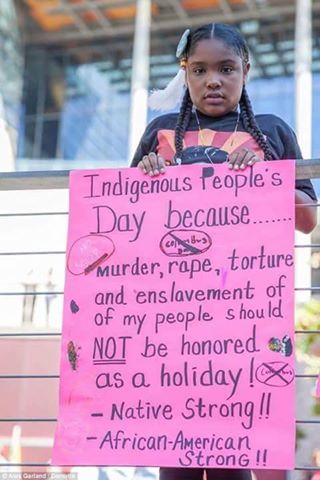 Indigenous People's
Day because.......
Columbus
Day
Murder, rape, torture
and enslavement of
of my people should
NOT be honored
as a holiday!
Columbus
- Native Strong!!
- African-American
Strong!!
© Alex Garland / Demotix